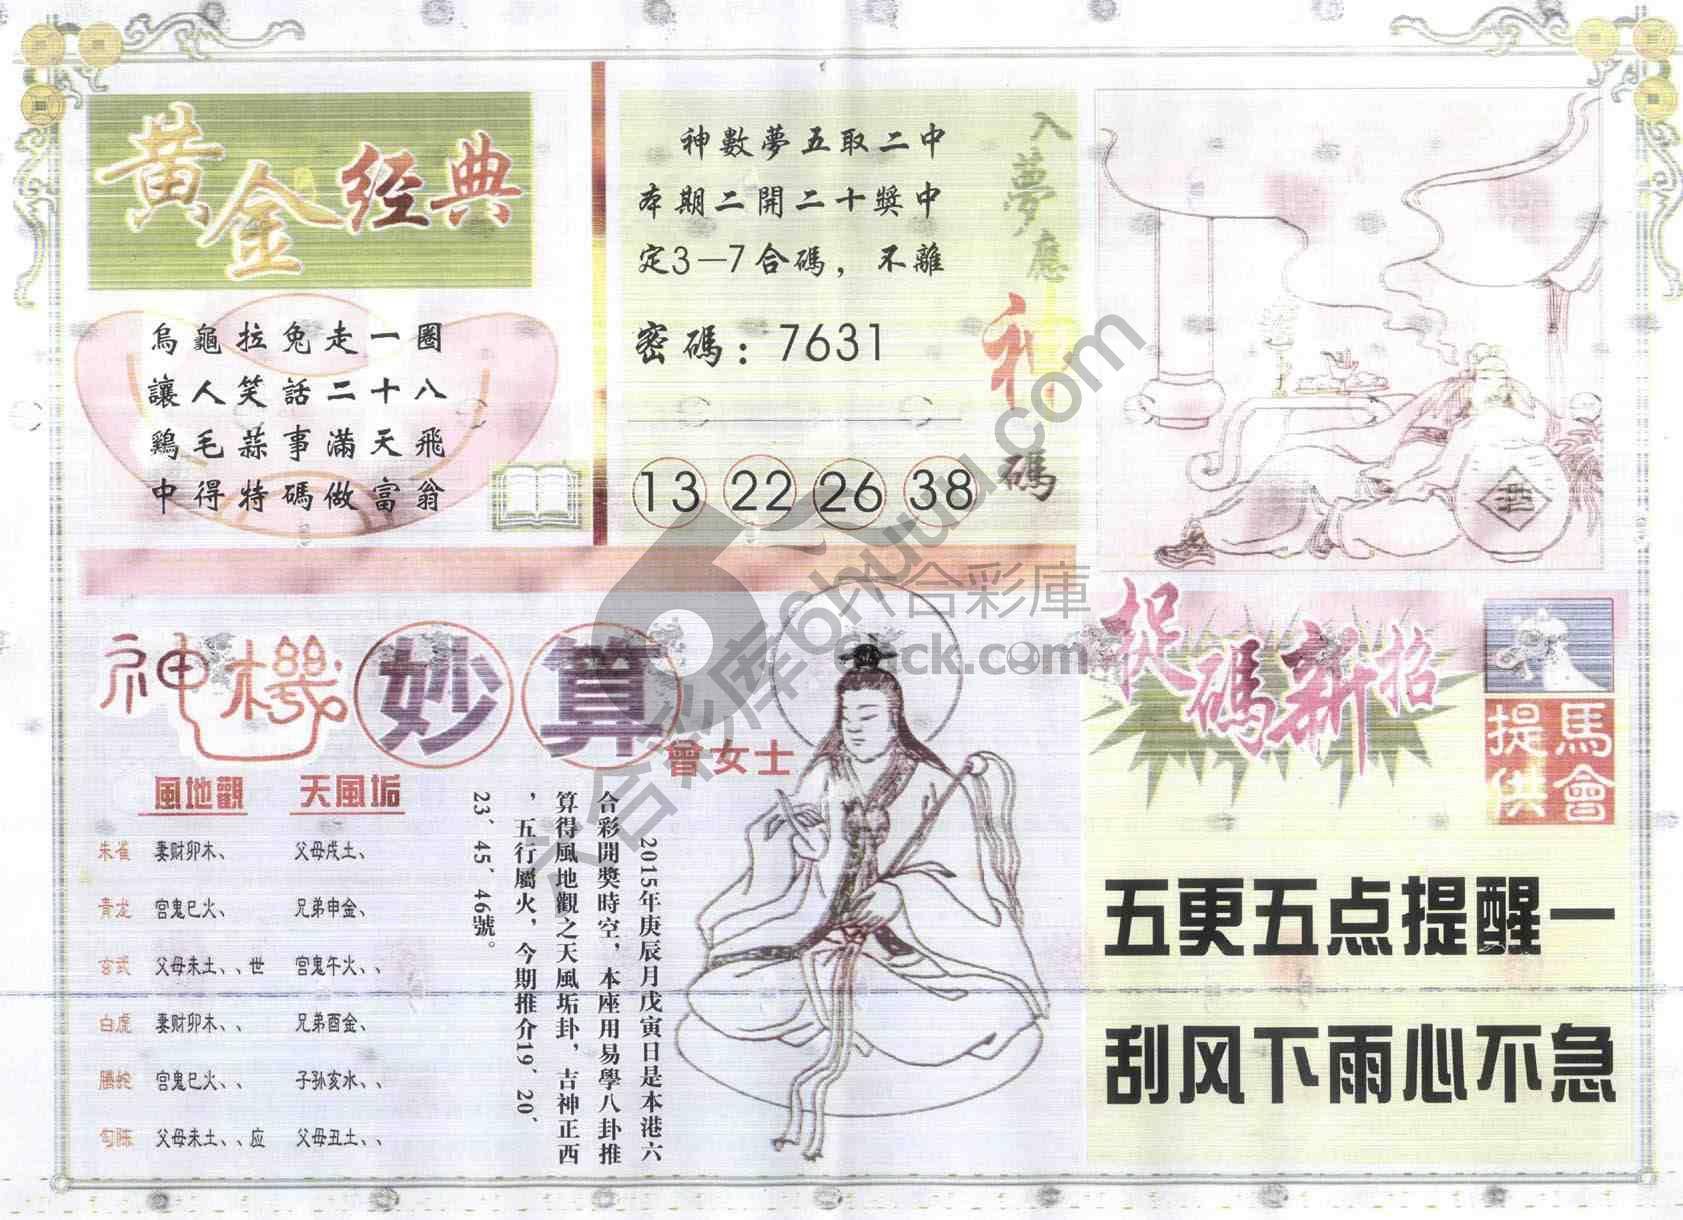 黄金经典
烏龜拉兔走一圈
讓人笑話二十八
鷄毛蒜事滿天飛
中得特碼做富翁
入夢應神碼
神數夢五取二中
本期二開二十獎中
定3—7合碼，不離
密碼：7631
13 22 26 38
酒
神機妙算
曾女士
風地觀 天風垢
朱雀 妻财卯木、 父母戌土、
青龙 官鬼巳火、 兄弟申金、
玄武 父母未土、、世 官鬼午火、、
白虎 妻财卯木、、 兄弟酉金、
腾蛇 官鬼巳火、、 子孙亥水、、
勾陈 父母未土、、应 父母丑土、、
2015年庚辰月戊寅日是本港六
合彩開獎時空，本座用易學八卦推
算得風地觀之天風垢卦，吉神正西
，五行屬火，今期推介19、20、
23、45、46號。
捉碼新招
馬會提供
五更五点提醒一
刮风下雨心不急
六合彩库 6hyuu.com
六合彩庫
ck.com